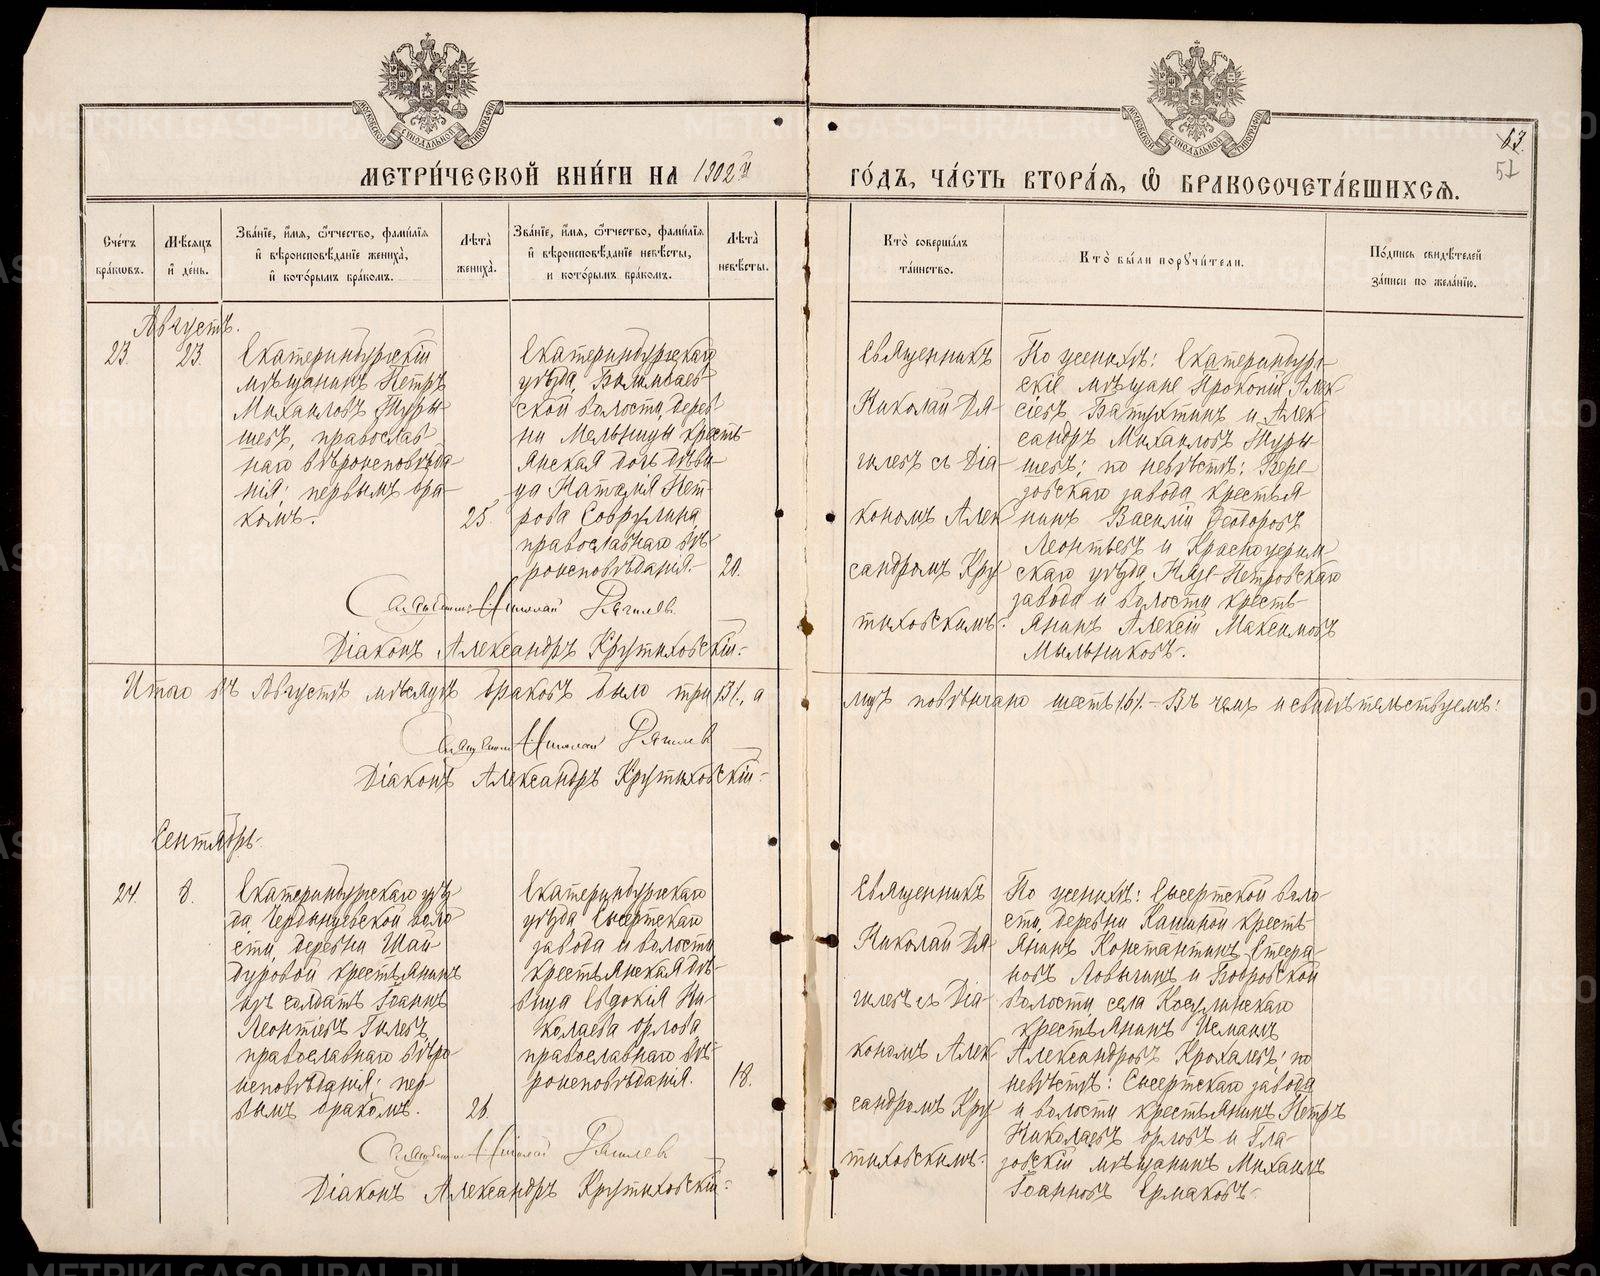 МЕТРИ́ЧЕСКОЙ КНИ́ГИ НА 1902й
ГО́ДЪ, ЧА́СТЬ ВТОРА́Я, Ѽ БРАКОСОЧЕТА́ВШИХСЯ.
63.
51
Сче́тъ бра́ковъ.
Мѣ́сяцъ и҆ де́нь.
Зва́нїе, и҆́мя, ѻ҆́тчество, фами́лїя и҆ вѣроисповѣ́данїе жениха̀, и҆ кото́рымъ бра́комъ.
Лѣ́та жениха̀.
Зва́нїе, и҆́мя, ѻ҆́тчество, фами́лїя и҆ вѣроисповѣ́данїе невѣ́сты, и кото́рымъ бра́комъ.
Лѣ́та невѣ́сты.
Кто̀ соверша́лъ та́инство.
Кто̀ бы́ли порꙋчи́тели.
По́дпись свидѣ́телей за́писи по жела́нїю.
Августъ.
23.
23.
Екатеринбургскій
мѣщанинъ Петръ
Михаиловъ Туры-
шевъ, православ-
наго вѣроисповѣда-
нія; первымъ бра-
комъ.
25.
Екатеринбургскаго
уѣзда, Билимбаев-
ской волости, дерев-
ни Мельницы кресть-
янская дочь дѣви-
ца Наталія Пет-
рова Соврулина
православнаго вѣ-
роисповѣданія.
20.
Священникъ
Николай Дя-
гилевъ съ Діа-
кономъ Алек-
сандромъ Кру-
тиховскимъ.
По женихѣ: Екатеринбург-
скіе мѣщане Прокопій Алек-
сіевъ Батухтинъ и Алек-
сандръ Михаиловъ Туры-
шевъ; по невѣстѣ: Бере-
зовскаго завода крестья-
нинъ Василій Ѳеодоровъ
Леонтьевъ и Красноуфим-
скаго уѣзда, Нязе-Петровскаго
завода и волости кресть-
янинъ Алексій Максимовъ
Мыльниковъ.
Священникъ Николай Дягилевъ.
Діаконъ Александръ Крутиховскій.
Итого въ Августѣ мѣсяцѣ браковъ было три /3/., а
лицъ повѣнчано шесть /6/. — Въ чемъ и свидѣтельствуемъ:
Священникъ Николай Дягилевъ
Діаконъ Александръ Крутиховскій.
Сентябрь.
24.
8.
Екатеринбургскаго уѣз-
да, Чердынцевской воло-
сти, деревни Шай-
дуровой крестьянинъ
изъ солдатъ Іоаннъ
Леонтіевъ Гилевъ,
православнаго вѣро-
исповѣданія; пер-
вымъ бракомъ.
26.
Екатеринбургскаго
уѣзда, Сысертскаго
завода и волости
крестьянская дѣ-
вица Евдокія Ни-
колаева Орлова
православнаго вѣ-
роисповѣданія.
18.
Священникъ
Николай Дя-
гилевъ съ Діа-
кономъ Алек-
сандромъ Кру-
тиховскимъ.
По женихѣ: Сысертской воло-
сти, деревни Кашиной кресть-
янинъ Константинъ Стефа-
новъ Ловыгинъ и Бобровской
волости, села Косулинскаго
крестьянинъ
Александровъ Крохалевъ; по
невѣстѣ: Сысертскаго завода
и волости крестьянинъ Петръ
Николаевъ Орловъ и Гла-
зовскій мѣщанинъ Михаилъ
Іоанновъ Ермаковъ.
Священникъ Николай Дягилевъ
Діаконъ Александръ Крутиховскій.